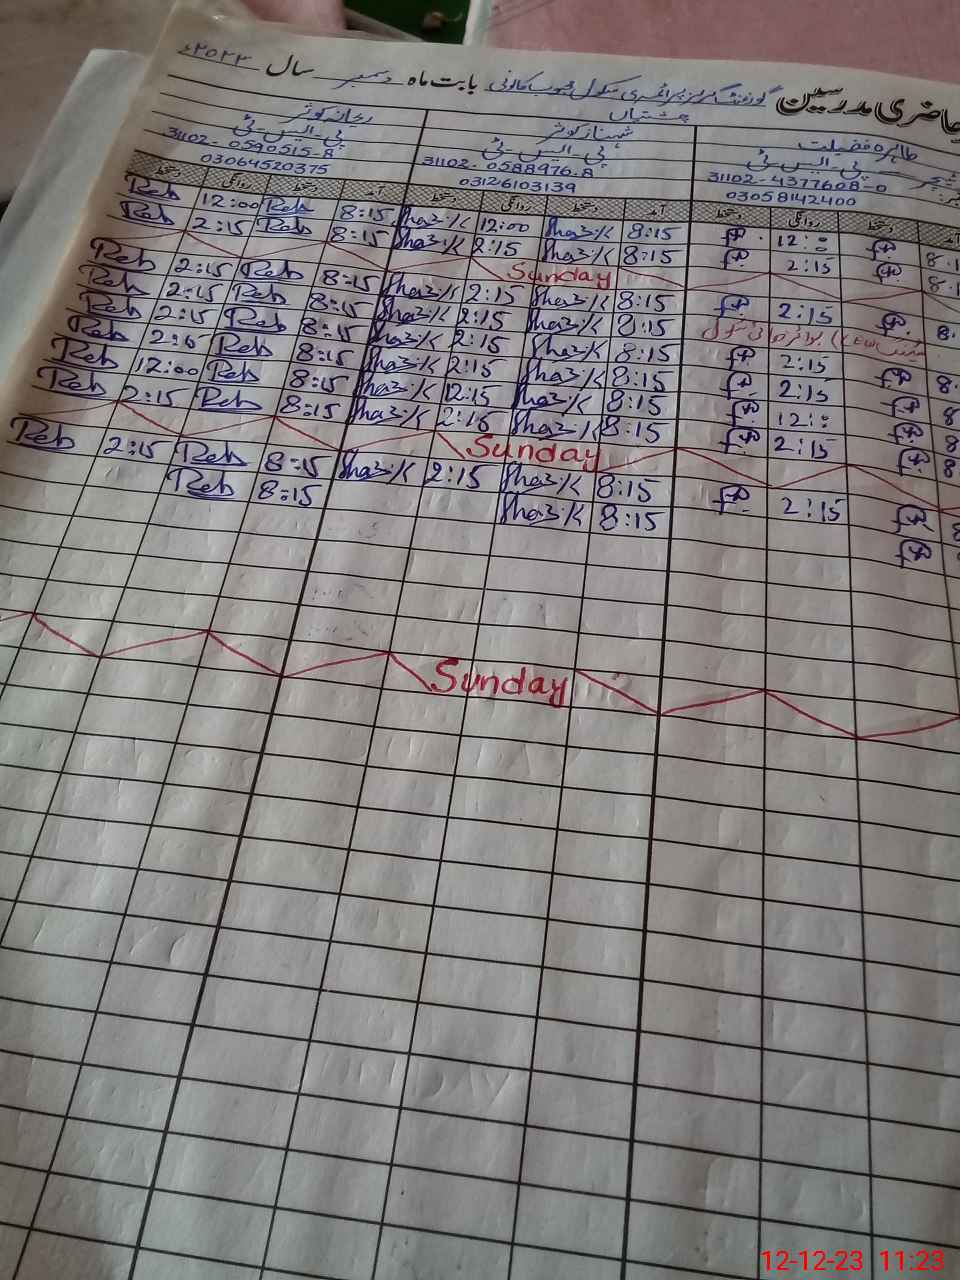 حاضری مدرسین گورنمنٹ گرلز پرائمری سکول محبوب کالونی بابت ماہ دسمبر سال ۲۰۲۳ء
چشتیاں
طاہرہ فضیلت شہناز کوثر ریحانہ کوثر
پی-ایس-ٹی پی-ایس-ٹی پی-ایس-ٹی
31102-4377608-0 31102-0588976-8 31102-0590515-8
03058142400 03126103139 03064520375
دستخط روانگی دستخط آمد دستخط روانگی دستخط آمد دستخط روانگی دستخط
Reh 12:00 Reh 8:15 Shaz.K 12:00 Shaz.K 8:15 12:0
Reh 2:15 Reh 8:15 Shaz.K 2:15 Shaz.K 8:15 2:15
Sunday
Reh 2:15 Reh 8:15 Shaz.K 2:15 Shaz.K 8:15 2:15
Reh 2:15 Reh 8:15 Shaz.K 2:15 Shaz.K 8:15
Reh 2:15 Reh 8:15 Shaz.K 2:15 Shaz.K 8:15 2:15
Reh 2:15 Reh 8:15 Shaz.K 2:15 Shaz.K 8:15 2:15
Reh 12:00 Reh 8:15 Shaz.K 12:15 Shaz.K 8:15 12:0
Reh 2:15 Reh 8:15 Shaz.K 2:16 Shaz.K 8:15 2:15
Sunday
Reh 2:15 Reh 8:15 Shaz.K 2:15 Shaz.K 8:15 2:15
Reh 8:15 Shaz.K 8:15
Sunday
12-12-23 11:23